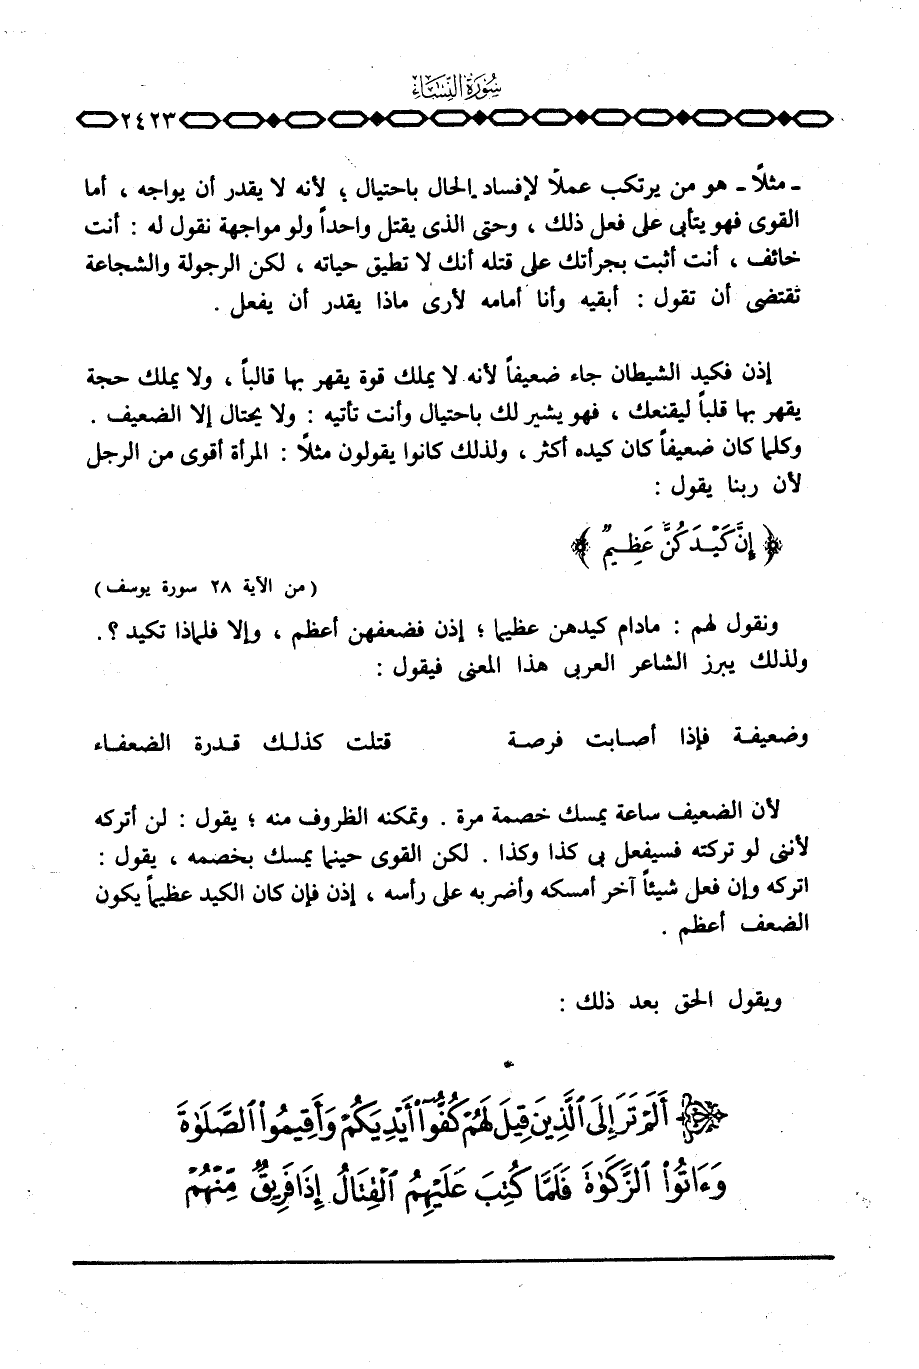 سُورَةُ النِّسَاءِ
٢٤٢٣
ـ مثلاً ـ هو من يرتكب عملًا لإفساد الحال باحتيال ؛ لأنه لا يقدر أن يواجه ، أما
القوى فهو يتأبى على فعل ذلك ، وحتى الذى يقتل واحداً ولو مواجهة نقول له : أنت
خائف ، أنت أثبت بجرأتك على قتله أنك لا تطيق حياته ، لكن الرجولة والشجاعة
تقتضى أن تقول : أبقيه وأنا أمامه لأرى ماذا يقدر أن يفعل .
إذن فكيد الشيطان جاء ضعيفاً لأنه لا يملك قوة يقهر بها قالباً ، ولا يملك حجة
يقهر بها قلباً ليقنعك ، فهو يشير لك باحتيال وأنت تأتيه : ولا يحتال إلا الضعيف .
وكلما كان ضعيفاً كان كيده أكثر ، ولذلك كانوا يقولون مثلاً : المرأة أقوى من الرجل
لأن ربنا يقول :
﴿ إِنَّ كَيْدَكُنَّ عَظِيمٌ ﴾
( من الآية ٢٨ سورة يوسف )
ونقول لهم : مادام كيدهن عظيما ؛ إذن فضعفهن أعظم ، وإلا فلماذا تكيد ؟ .
ولذلك يبرز الشاعر العربى هذا المعنى فيقول :
وضعيفة فإذا أصابت فرصة قتلت كذلك قدرة الضعفاء
لأن الضعيف ساعة يمسك خصمة مرة . وتمكنه الظروف منه ؛ يقول : لن أتركه
لأننى لو تركته فسيفعل بى كذا وكذا . لكن القوى حينما يمسك بخصمه ، يقول :
اتركه وإن فعل شيئاً آخر أمسكه وأضربه على رأسه ، إذن فإن كان الكيد عظيماً يكون
الضعف أعظم .
ويقول الحق بعد ذلك :
﴿ أَلَمْ تَرَ إِلَى ٱلَّذِينَ قِيلَ لَهُمْ كُفُّوٓا۟ أَيْدِيَكُمْ وَأَقِيمُوا۟ ٱلصَّلَوٰةَ
وَءَاتُوا۟ ٱلزَّكَوٰةَ فَلَمَّا كُتِبَ عَلَيْهِمُ ٱلْقِتَالُ إِذَا فَرِيقٌ مِّنْهُمْ